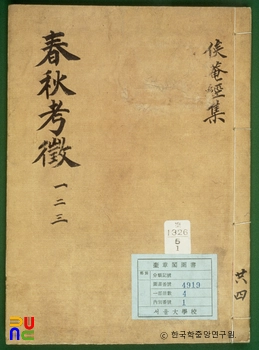 俟菴經集
春秋考徵
一二三
共四
1926
5
1
奎章閣圖書
4919
4
1
서울大學校
ⓒ 한국학중앙연구원